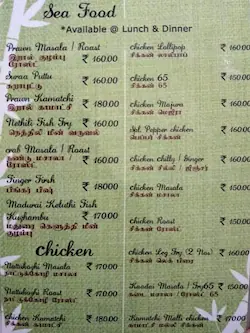 Sea Food
*Available @ Lunch & Dinner
Prawn Masala / Roast ₹ 160.00
இறால் குழம்பு
ரோஸ்ட்
Suraa Puttu ₹ 160.00
சுறாபுட்டு
Prawn Kamatchi ₹ 180.00
இறால் காமாட்சி
Nethili Fish Fry ₹ 160.00
நெத்திலி மீன் வறுவல்
crab Masala / Roast ₹ 160.00
நண்டு மசாலா /
ரோஸ்ட்
Finger Fish ₹ 180.00
பிங்கர் பிஷ்
Madurai Keluthi Fish
Kuzhambu ₹ 170.00
மதுரை கெளுத்தி மீன்
குழம்பு
chicken
Nattukozhi Masala ₹ 170.00
நாட்டுக்கோழி மசாலா
Nattukozhi Roast ₹ 170.00
நாட்டுக்கோழி ரோஸ்ட்
chicken Kamatchi ₹ 180.00
சிக்கன் காமாட்சி
chicken Lollipop ₹ 160.00
சிக்கன் லாலிபாப்
chicken 65 ₹ 150.00
சிக்கன் 65
chicken Majura ₹ 160.00
சிக்கன்
Pepper chicken ₹ 160.00
பெப்பர் சிக்கன்
chicken chilly / Ginger ₹ 160.00
சிக்கன் சில்லி / ஜிஞ்சர்
chicken Masala ₹ 150.00
சிக்கன் மசாலா
chicken Roast ₹ 150.00
சிக்கன் ரோஸ்ட்
chicken Leg Fry (2 Nos) ₹ 160.00
சிக்கன் லெக் பிரை
Kaadai Masala / Fry65 ₹ 150.00
காடை மசாலா / ரோஸ்ட் 65
Kamatchi Malli chicken ₹ 170.00
காமாட்சி மல்லி சிக்கன்